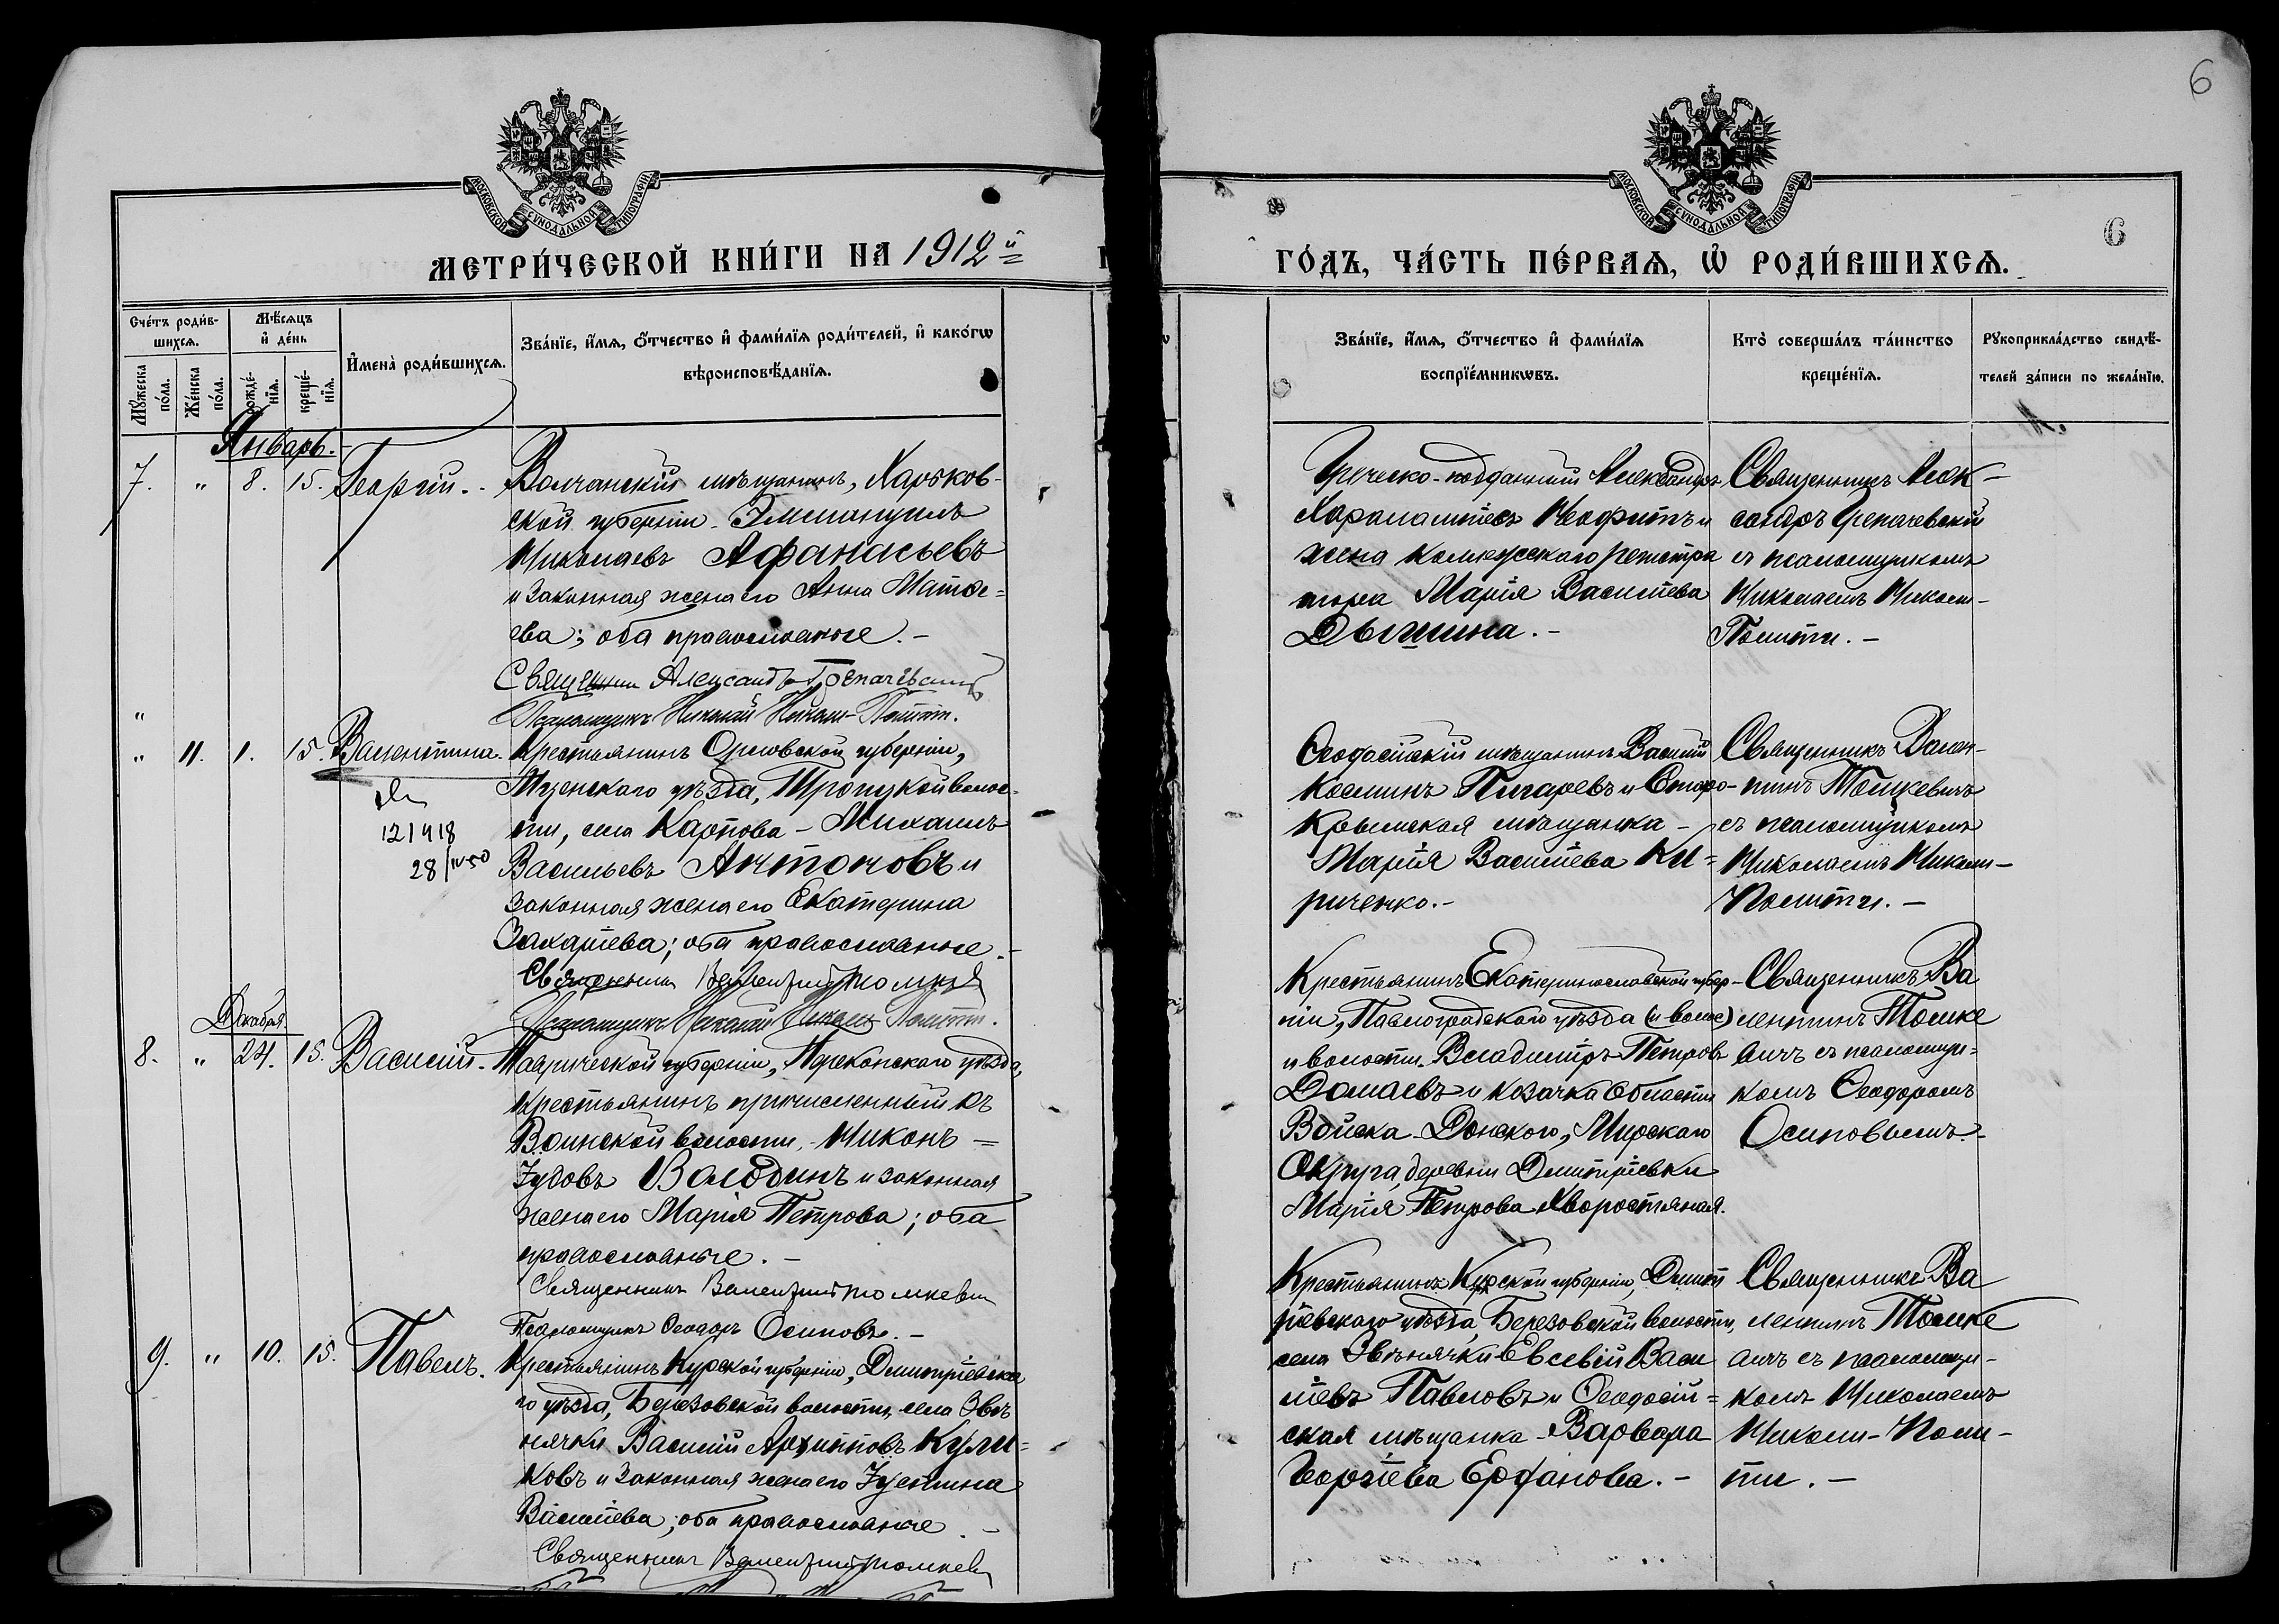 6
МОСКОВСКОЙ СѴНОДАЛЬНОЙ ТИПОГРАФІИ
МОСКОВСКОЙ СѴНОДАЛЬНОЙ ТИПОГРАФІИ
6
МЕТРИ́ЧЕСКОЙ КНИ́ГИ НА 1912й
ГО́ДЪ, ЧА́СТЬ ПЕ́РВАѦ, Ѡ РОДИ́ВШИХСѦ.
Сче́тъ роди́в-
шихсѧ.
Мꙋ́жеска по́ла.
Же́нска по́ла.
Мѣ́сѧцъ
и҆ де́нь
рожде́-нїѧ.
креще́-нїѧ.
И҆мена̀ роди́вшихсѧ.
Зва́нїе, и҆́мѧ, ѻ҆́тчество и҆ фами́лїѧ роди́телей, и҆ како́гѡ
вѣроисповѣ́данїѧ.
Зва́нїе, и҆́мѧ, ѻ҆́тчество и҆ фами́лїѧ
воспрїе́мникѡвъ.
Кто̀ соверша́лъ та́инство
креще́нїѧ.
Рꙋкоприкла́дство свидѣ́-
телей за́писи по жела́нїю.
Январь.
7. " 8. 15. Георгій.
Волчанскій мѣщанинъ, Харьков-
ской губерніи Эммануилъ
Николаевъ Афанасьевъ
и законная жена его Анна Матѳе=
ева; оба православные.-
Священник Александръ
Псаломщикъ Николай Николи-Полити.
Греческо-подданный Александръ
Харалампіевъ Неофитъ и
жена коллежскаго регистра
тора Марія Васильева
Дымшина.-
Священникъ Алек-
сандръ
съ псаломщикомъ
Николаемъ Николи-
Полити.-
"
" 11. 1. 15. Валентина.
121418
28/IV 50
Крестьянинъ Орловской губерніи,
Мценскаго уѣзда, Троицкой волос-
ти, села Карпова - Михаилъ
Васильевъ Антоновъ и
законная жена его Екатерина
Захаріева; оба православные.-
Священник Валентинъ Томкевич
Псаломщикъ Николай Николи Полити.
Ѳеодосійскій мѣщанинъ Василій
Космин Пигаревъ и Старо-
крымская мѣщанка -
Марія Васильева Ки=
риченко.-
Священникъ Вален-
тинъ Томкевичъ
съ псаломщикомъ
Николаемъ Николи-
Полити.-
Декабря
8. " 24. 15. Василій.
Таврической губерніи, Перекопскаго уѣзда,
крестьянинъ причисленный къ
Воинской волости, Никонъ =
Іудовъ Володинъ и законная
жена его Марія Петрова; оба
православные.-
Священникъ Валентинъ Томкевич
Псаломщикъ Ѳеодоръ Осиповъ.-
Крестьянинъ Екатеринославской губер-
ніи, Павлоградскаго уѣзда (и волос)
и волости Владиміръ Петровъ
Домаевъ и козачка Области
Войска Донского,
Округа, деревни Дмитріевки
Марія Петрова Хворостяная.
Священникъ Ва
лентинъ Томке
вичъ съ псаломщи=
комъ Ѳеодоромъ
Осиповымъ.-
9. " 10. 15. Павелъ.
Крестьянинъ Курской губерніи, Дмитріевска
го уѣзда, Березовской волости, села Звѣ
нячки Василій Архиповъ Кули=
ковъ и законная жена его Іустина
Васильева; оба православные.-
Священник Валентинъ Томкевич
Крестьянинъ Курской губерніи, Дмит
ріевскаго уѣзда, Березовской волости,
села Звѣнячки Евсевій Васи
ліевъ Павловъ и Ѳеодосій=
ская мѣщанка - Варвара
Георгіева Ерфанова.-
Священникъ Ва
лентинъ Томке
вичъ съ псаломщи-
комъ Николаемъ
Николи-Поли-
ти.-